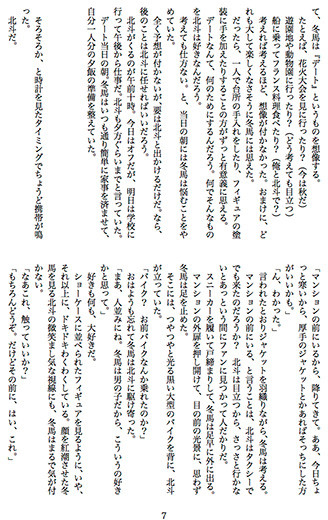 て、冬馬は『デート』というものを想像する。
たとえば、花火大会を見に行ったり？（今は秋だ）
遊園地や動物園に行ったり？（どう考えても目立つ）
船に乗ってフランス料理食べたり？（俺と北斗で？）
考えれば考えるほど、想像が付かなかった。おまけに、ど
れも大して楽しくなさそうに冬馬には思えた。
だったら、一人で台所の手入れをしたり、フィギュアの塗
装に手を加えたりすることの方がずっと有意義に思える。
デートなんて、何のためにするんだろう。何でそんなもの
を北斗は好きなんだろう。
考えても仕方ない。と、当日の朝には冬馬は悩むことをや
めていた。
全く予想が付かないが、要は北斗と出かけるだけだ。なら、
後のことは北斗に任せればいいだろう。
北斗がくるのが午前十時。今日はオフだが、明日は学校に
行って午後から仕事だ。北斗も夕方ぐらいまでと言っていた。
デート当日の朝、冬馬はいつも通り簡単に家事を済ませて、
自分一人分の夕飯の準備を整えていた。
そろそろか、と時計を見たタイミングでちょうど携帯が鳴
った。
北斗だ。
「マンションの前にいるから、降りてきて。ああ、今日ちょ
っと寒いから、厚手のジャケットとかあればそっちにした方
がいいかも」
「ん、わかった」
言われたとおりジャケットを羽織りながら、冬馬は考える。
マンションの前にいる、と言うことは、北斗はタクシーで
でも来たのだろうか？ 北斗は目立つから、さっさと行かな
いとあっという間にファンに見つかって人だかりだ。
スニーカーを履いて戸締まりして、冬馬は足早に外に出る。
マンションの外扉を押し開けて、目の前の光景に、思わず
冬馬は足を止めた。
そこには、つやつやと光る黒い大型のバイクを背に、北斗
が立っていた。
「バイク？ お前バイクなんか乗れたのか？」
おはようも忘れて冬馬は北斗に駆け寄った。
「まあ、人並みにね。冬馬は男の子だから、こういうの好き
かと思って」
好きも何も、大好きだ。
ショーケースに並べられたフィギュアを見るように、いや、
それ以上に、ドキドキわくわくしている。顔を紅潮させた冬
馬を見る北斗の微笑まし気な視線にも、冬馬はまるで気が付
かない。
「なあこれ、触っていいか？」
「もちろんどうぞ。だけどその前に、はい、これ。」
7